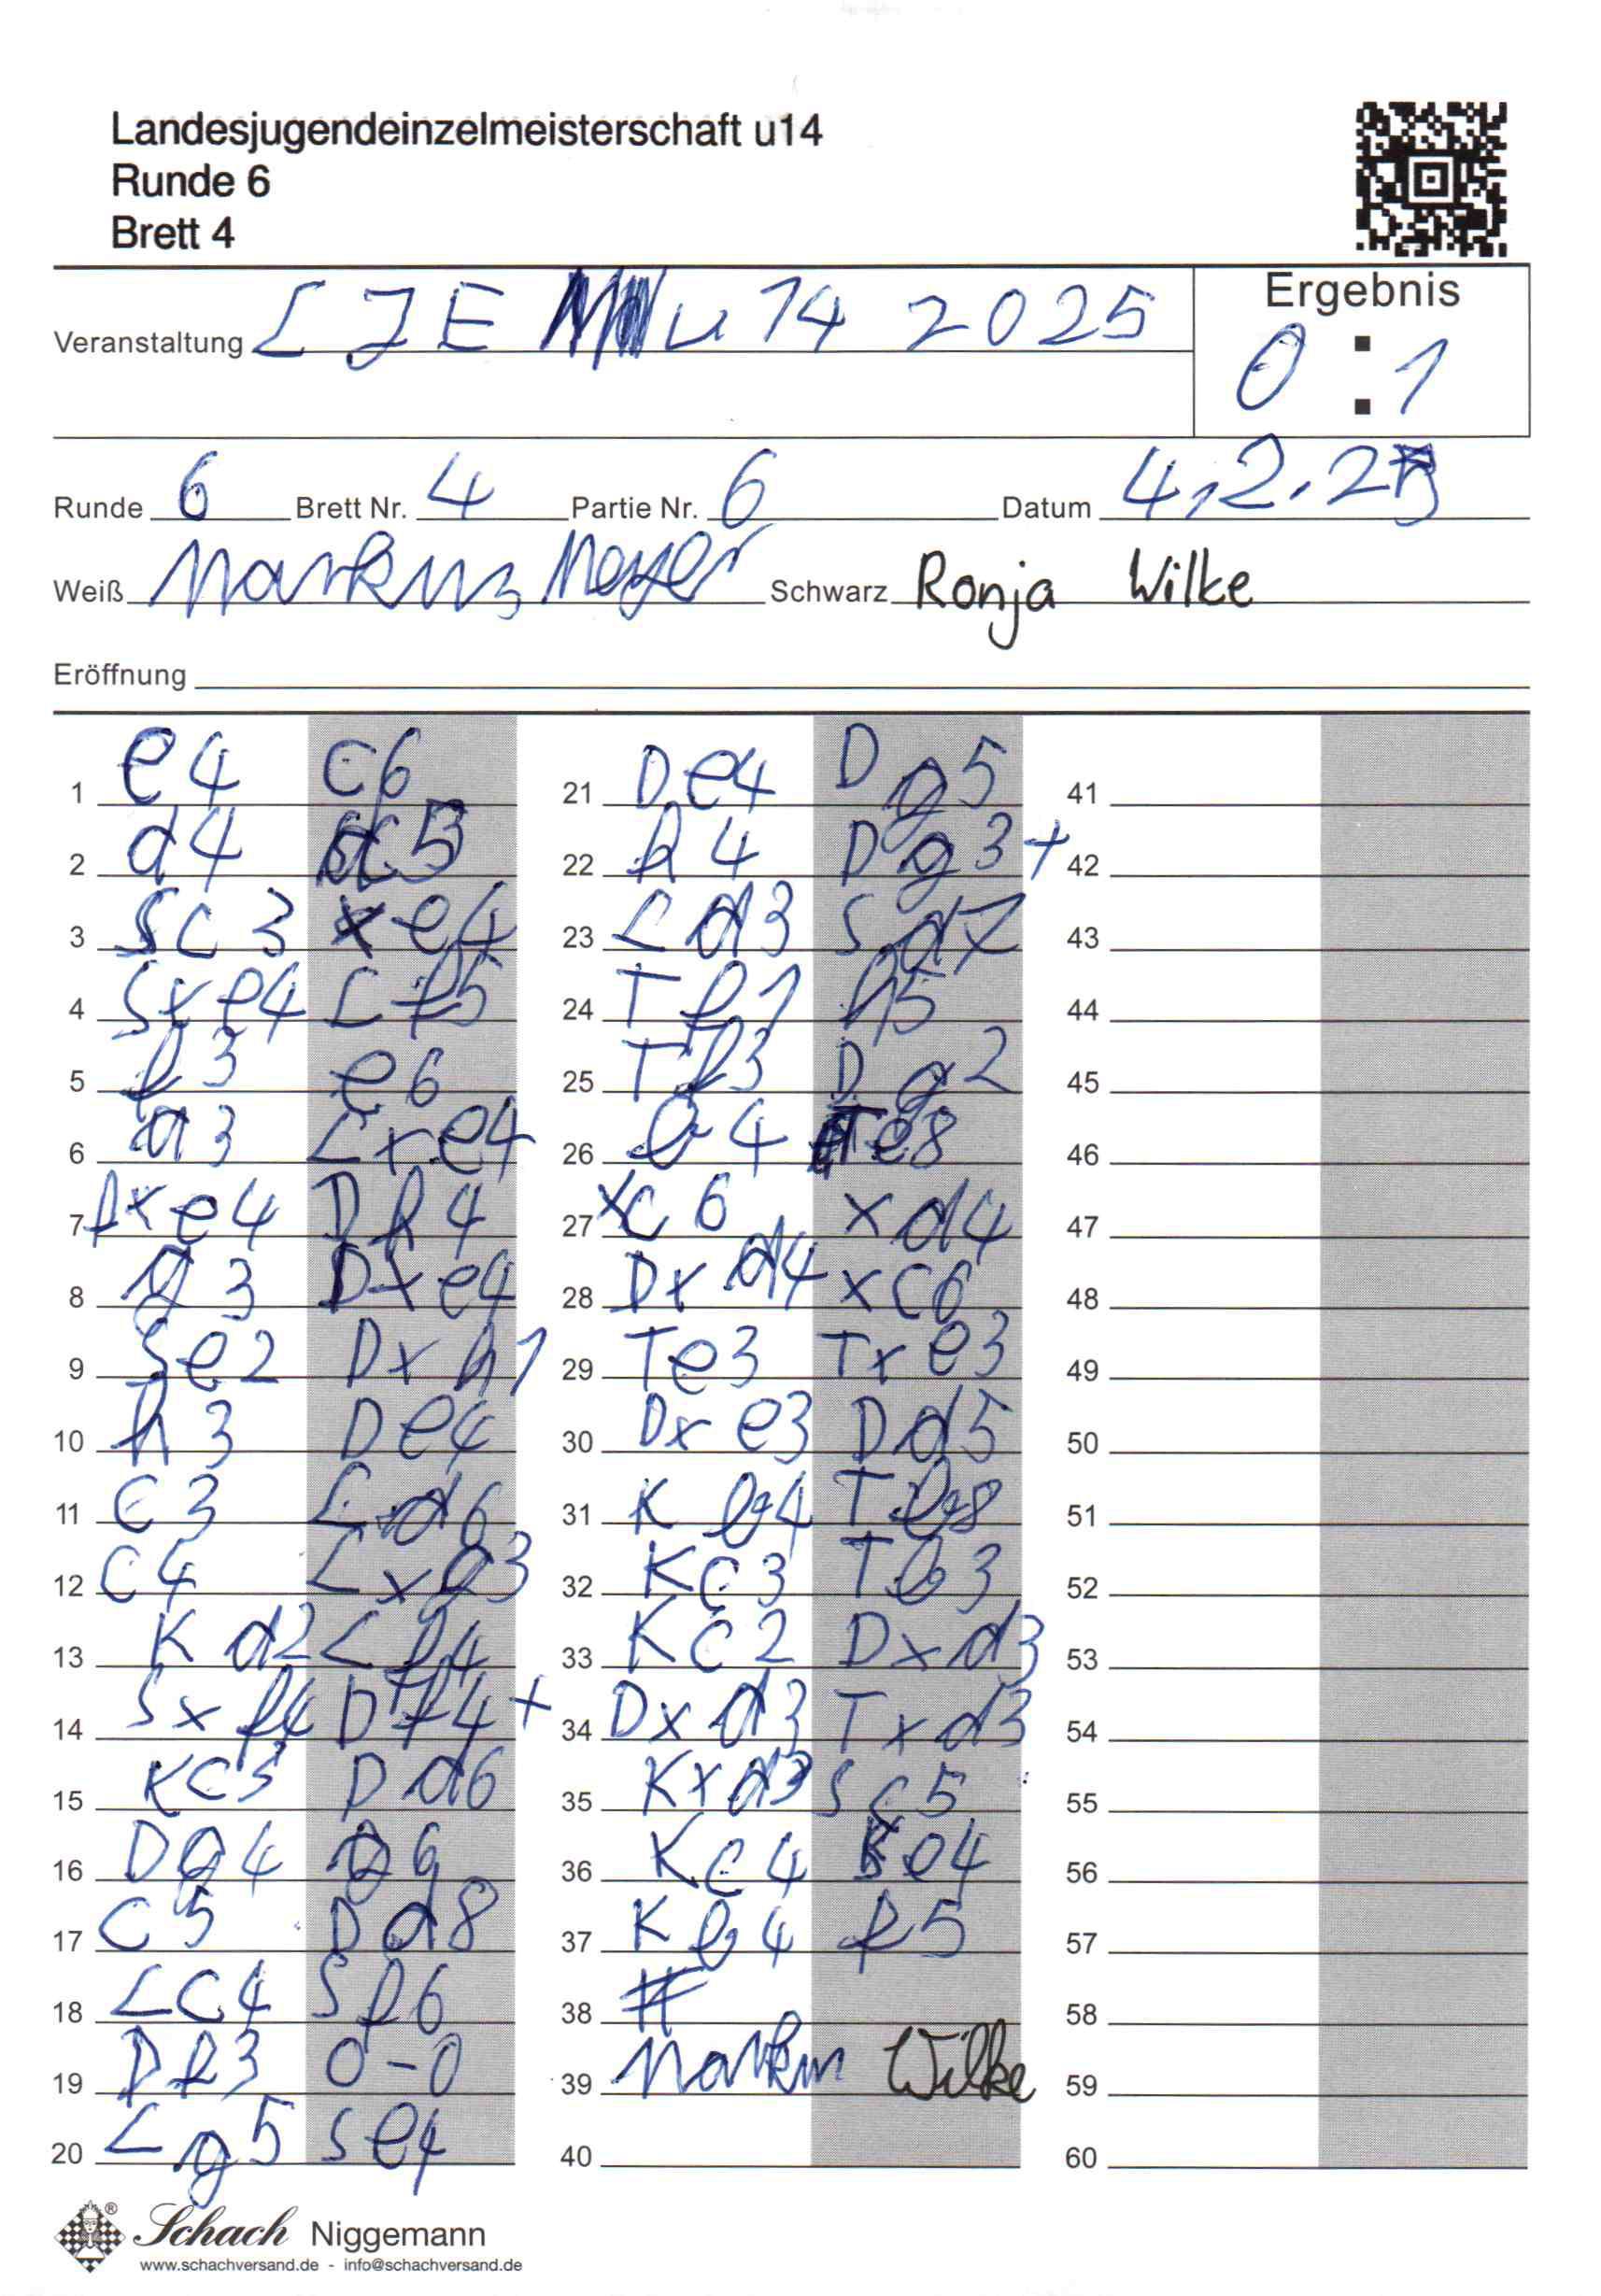 Landesjugendeinzelmeisterschaft u14
Runde 6
Brett 4
Veranstaltung LJE u14 2025
Ergebnis
0 : 1
Runde 6 Brett Nr. 4 Partie Nr. 6 Datum 4.2.25
Weiß Markus Meyer Schwarz Ronja Wilke
Eröffnung
1 e4 c6 21 De4 Dg5 41
2 d4 d5 22 h4 Dg3+ 42
3 Sc3 xe4 23 Ld3 Sd7 43
4 Sxe4 Lf5 24 Tf1 h5 44
5 f3 e6 25 Tf3 Dg2 45
6 a3 Lxe4 26 b4 Te8 46
7 fxe4 Dh4 27 xc6 xd4 47
8 g3 Dxe4 28 Dxd4 xc6 48
9 Se2 Dxh1 29 Te3 Txe3 49
10 h3 De4 30 Dxe3 Dd5 50
11 c3 Ld6 31 Kb4 Tb8 51
12 c4 Lxg3 32 Kc3 Tb3 52
13 Kd2 Lf4 33 Kc2 Dxd3 53
14 Sxf4 Df4+ 34 Dxd3 Txd3 54
15 Kc3 Dd6 35 Kxd3 Sc5 55
16 Dg4 g6 36 Kc4 Se4 56
17 c5 Dd8 37 Kb4 f5 57
18 Lc4 Sf6 38 # 58
19 Df3 0-0 39 Markus Wilke 59
20 Lg5 Se4 40 60
Schach Niggemann
www.schachversand.de - info@schachversand.de